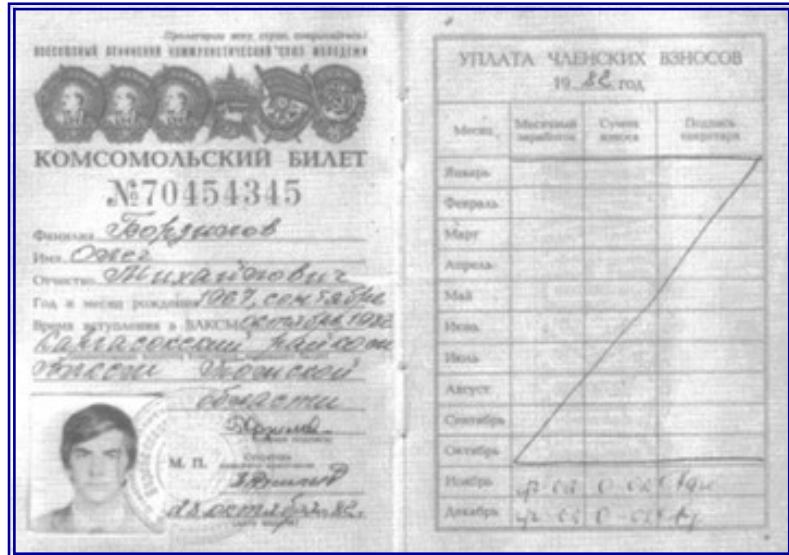 Пролетарии всех стран, соединяйтесь!
ВСЕСОЮЗНЫЙ ЛЕНИНСКИЙ КОММУНИСТИЧЕСКИЙ СОЮЗ МОЛОДЕЖИ
КОМСОМОЛЬСКИЙ БИЛЕТ
№70454345
Фамилия
Имя Олег
Отчество Михайлович
Год и месяц рождения 1967, сентябрь
Время вступления в ВЛКСМ октябрь 1982
Каргасокский райком
Томской
области
М. П.
Секретарь
28 октября 82 г.
УПЛАТА ЧЛЕНСКИХ ВЗНОСОВ
19 82 год
Месяц Месячный заработок Сумма взноса Подпись секретаря
Январь
Февраль
Март
Апрель
Май
Июнь
Июль
Август
Сентябрь
Октябрь
Ноябрь
Декабрь